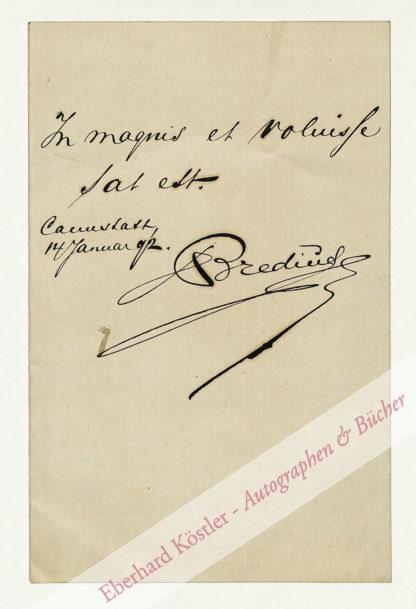 In magnis et voluisse
sat est.
Cannstatt,
14 Januar 92.
Eberhard Köstler - Autographen & Bücher